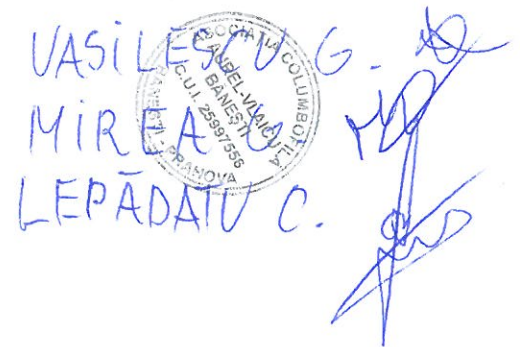 VASILESCU G.
MIREA
LEPĂDATU C.
ASOCIAȚIA COLUMBOFILA
AUREL-VLAICU
BANESTI
C.U.I. 25997555
PRAHOVA